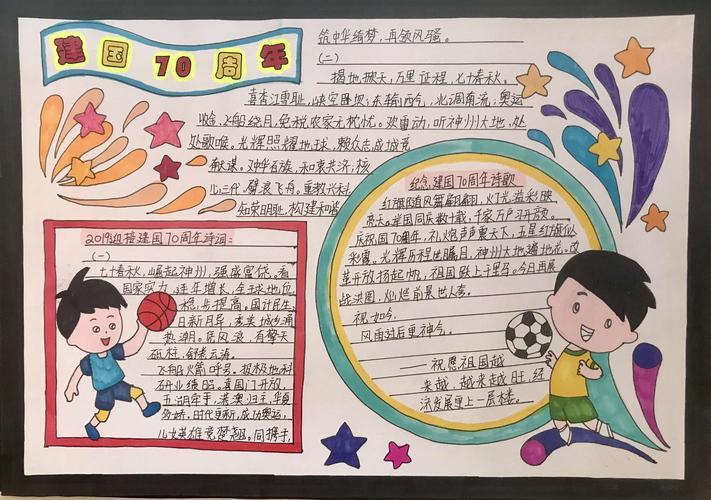 建国70周年
2019迎接建国70周年诗词:
(一)
七十春秋,崛起神州,强盛富饶。看
国家实力,连年增长,全球地位,
稳步提高。国计民生,
日新月异,老实城乡涌
热潮。居风浪,有擎天
砥柱,舒卷云涛。
飞船火箭呼号。报极地科
研业绩昭。喜国门开放,
五湖牵手,港澳归主,华夏
多娇。时代更新,成功奥运,
儿女英雄竞楚翘。同携手,
筑中华绮梦,再领风骚。
(二)
揭地掀天,万里征程,七十春秋。
喜香江雪耻,
东输西气,北调南流,奥运
飞船绕月,免税农家无忧忧。欢雷动,听神州大地,处
处歌喉。光辉照耀地球,赖众志成城
献谋。对中华百族,和衷共济,核
心三代,擘浪飞舟。重教兴科,
知荣明耻,构建和谐
纪念建国70周年诗歌
红旗随风舞翩翩,灯光溢彩映
亮天。举国同庆数十载,千家万户
庆祝国70周年,礼炮声声震天下,五星红旗似
彩霞。光辉历程世瞩目,神州大地遍地花。改
革开放扬起帆,祖国殿上千里马。今日再展
宏图,灿烂前景世人夸。
祝如今,
风雨过后更神气。
——祝愿祖国越
来越,越来越旺,经
济发展更上一层楼。